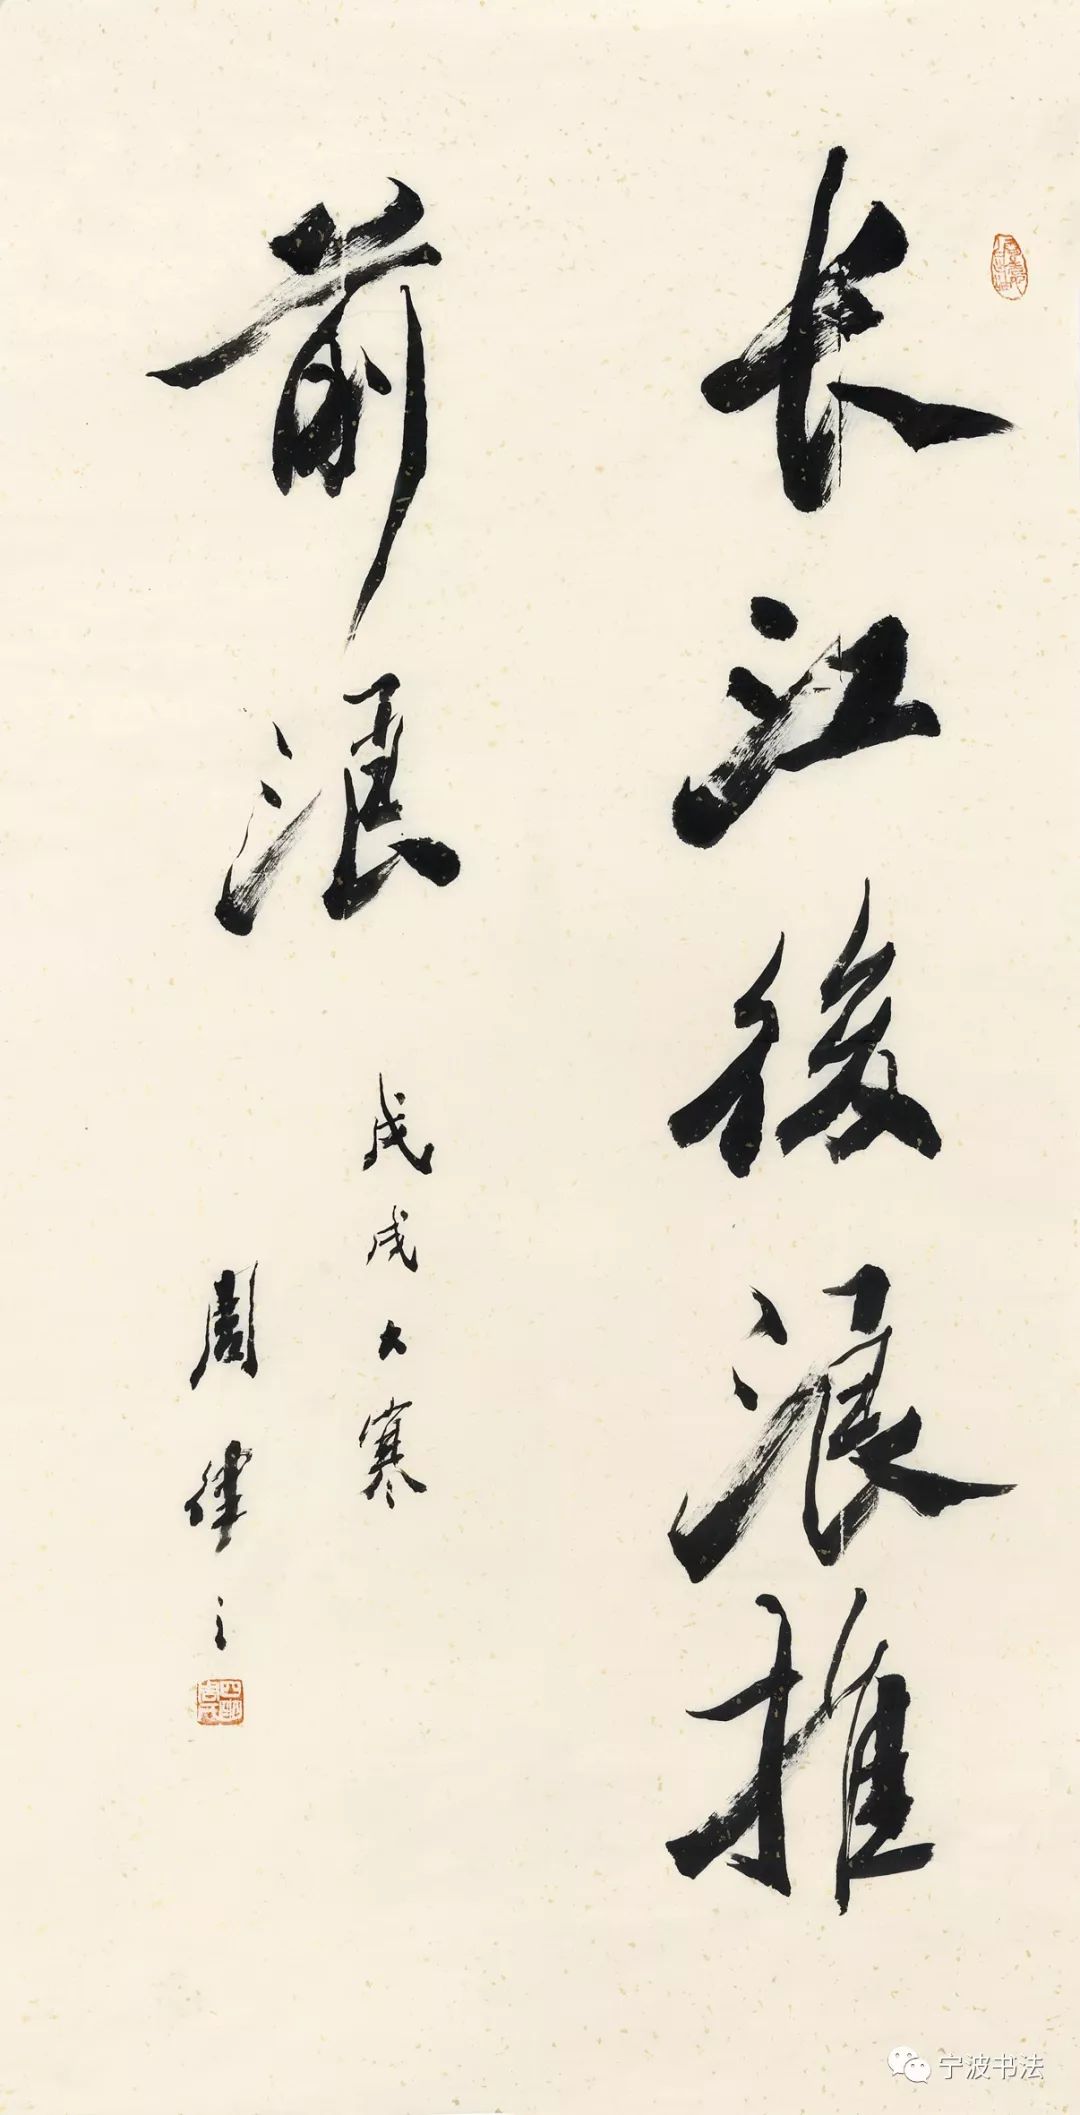 长江後浪推
前浪
戊戌大寒
周律之
宁波书法